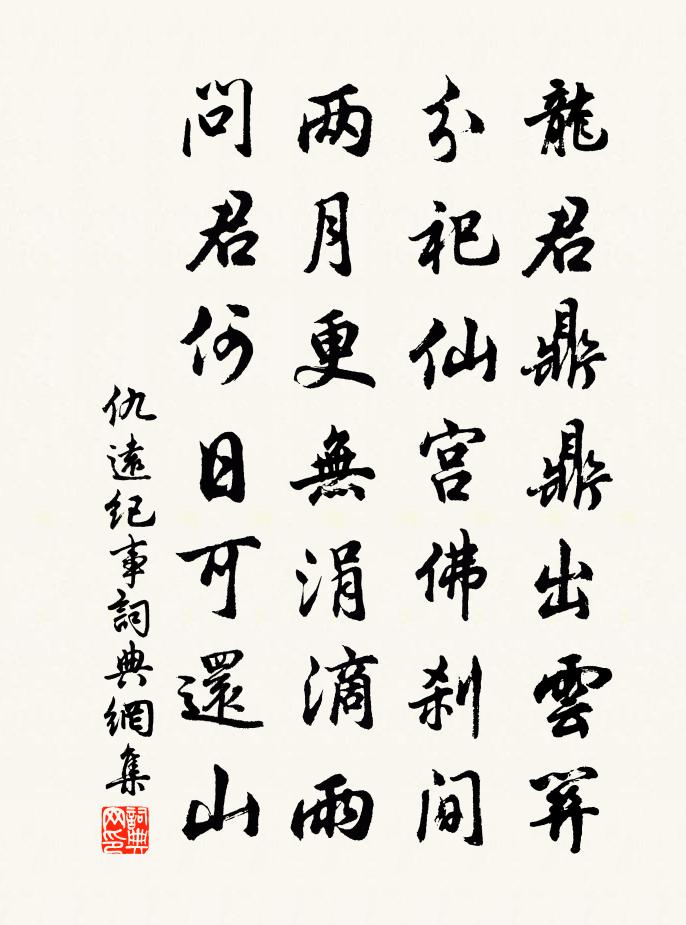 龍君鼎鼎出雲關
分祀仙宮佛刹間
两月更無涓滴雨
問君何日可還山
仇遠紀事詞典網集
詞典网印